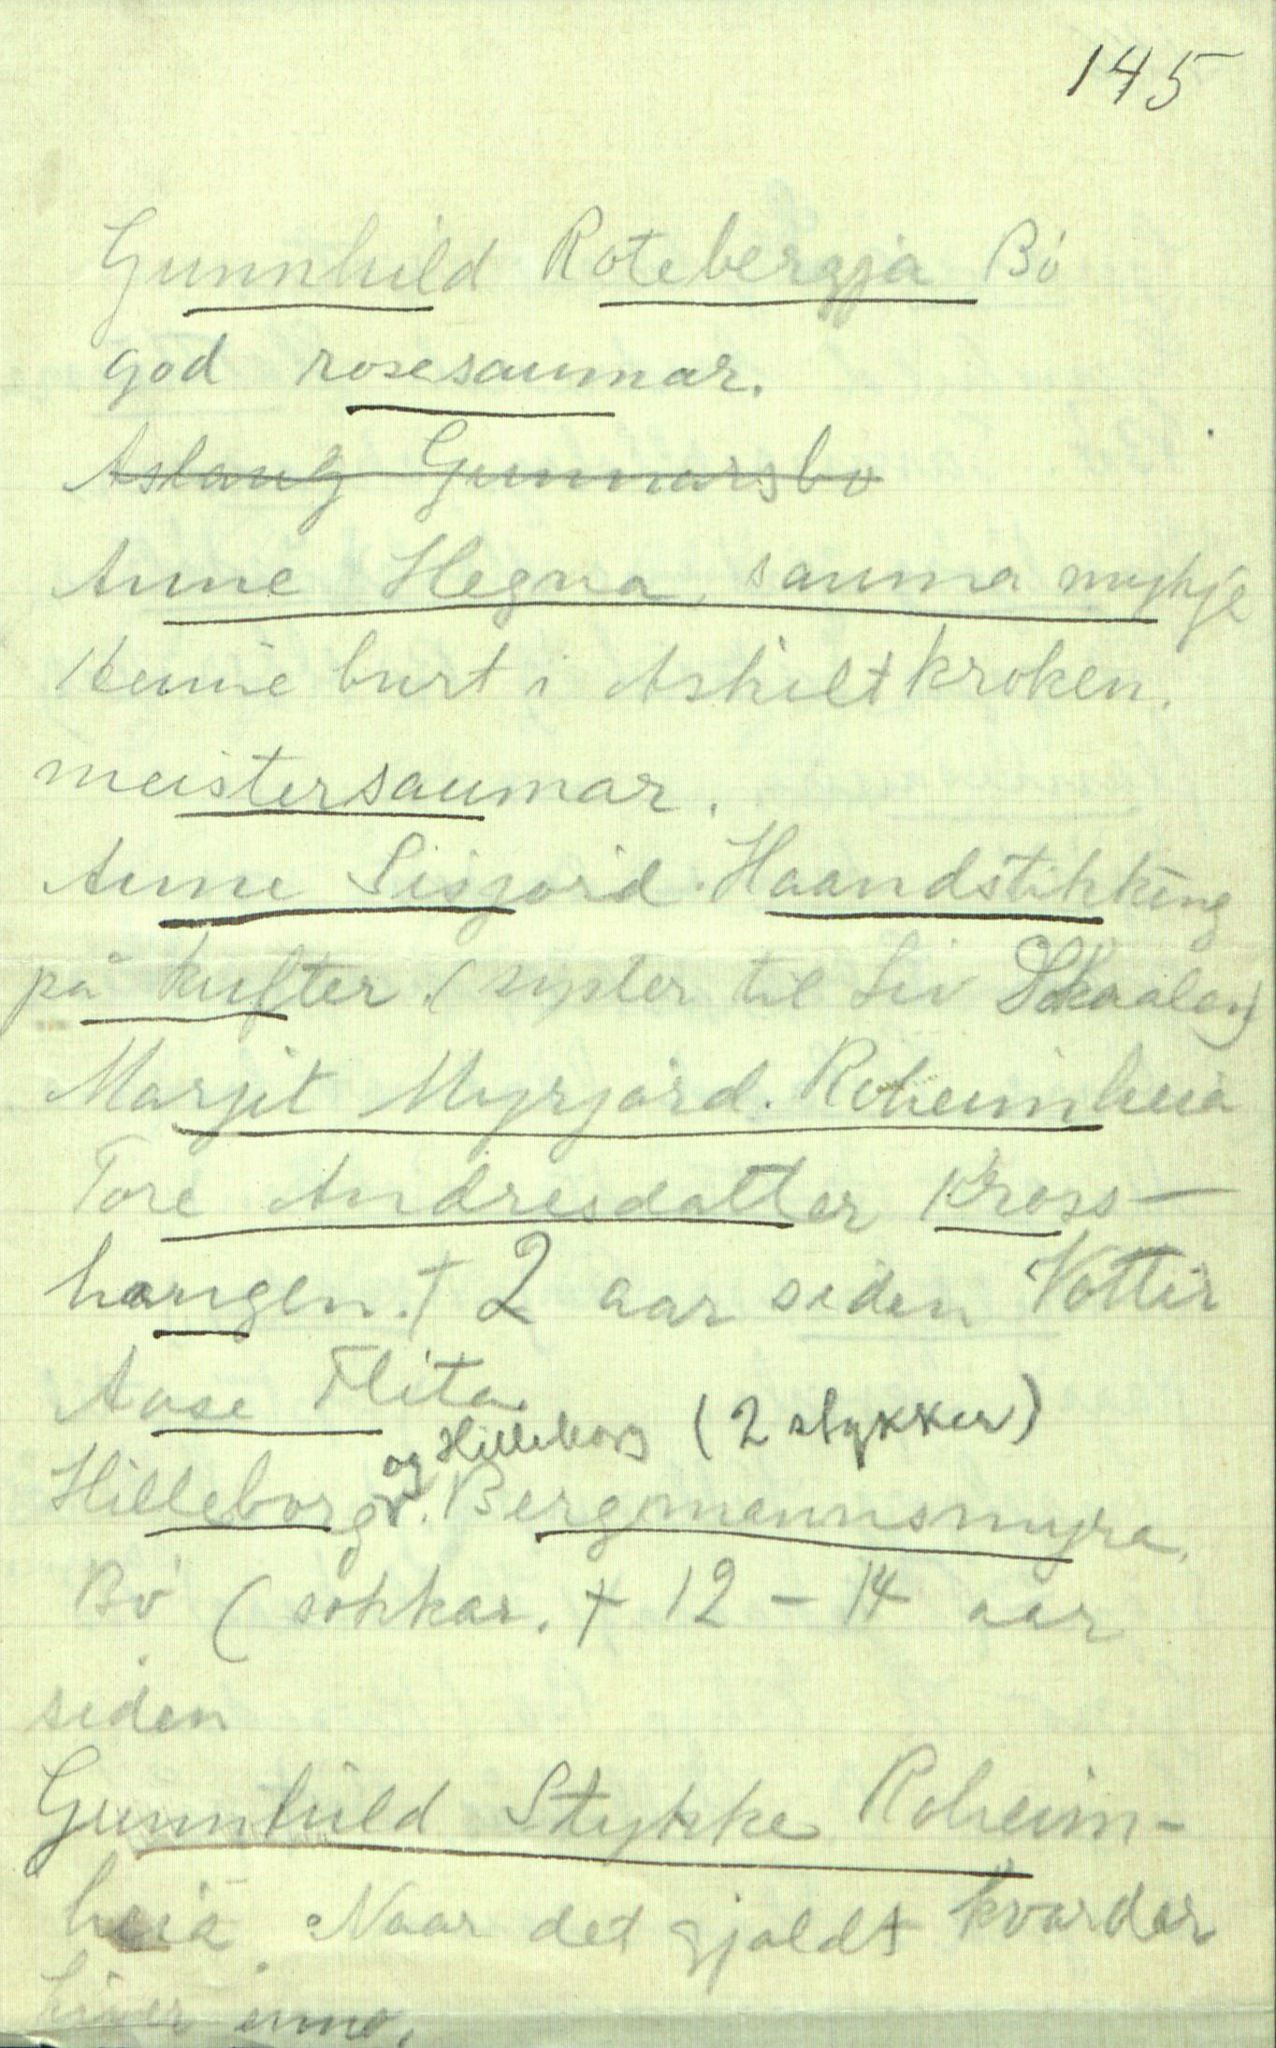 145
Gunnhild Rotebergja Bö
god rosesaumar.
Aslaug Gunnarsbø
Anne Hegna, sauma mykje
burt i Askiltkroken.
meistersaumar.
Anne Sisjord. Haandstikking
på kufter. (syster til Liv Skaalen)
Margit Myrjord. Roheimheia
Tore Andresdatter Kross-
haugen. † 2 aar siden Vottir
Aase Flita.
og Hilleborg (2 stykker)
Hilleborg. Bergmannsmyra.
Bö (sokkar. † 12 - 14 aar
siden
Gunnhild Stykke Roheim-
heia. Naar det gjaldt kvardar